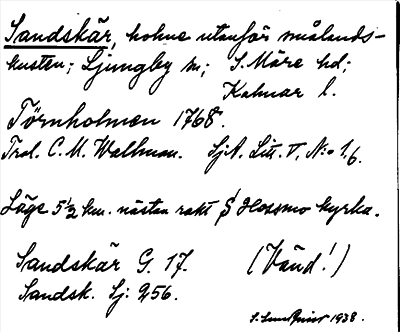 Sandskär, holme utanför smålands-
kusten; Ljungby sn; S. Möre hd;
Kalmar l.
Törnholmen 1768.
Trol. C. M. Wallman. SjA. Litt. V, N:o 1,6.
Läge 5½ km. nästan rakt S Hossmo kyrka.
Sandskär G. 17. (Vänd!)
Sandsk. Sj: 256.
1938.